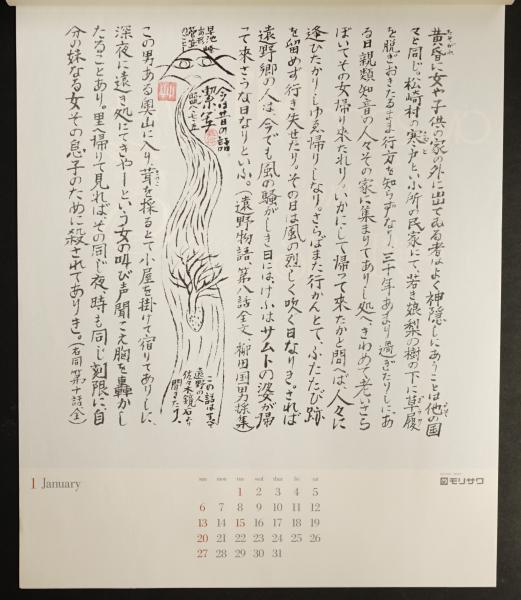 黄昏に女や子供の家の外に出てゐる者はよく神隠しにあふことは他の国
々と同じ。松崎村の寒戸といふ所の民家にて、若き娘梨の樹の下に草履
を脱ぎおきたるまま行方を知らずなり、三十年あまり過ぎたりしに、あ
る日親類知音の人々その家に集まりてありし処へ、きわめて老いさら
ぼいてその女帰り来たれり。いかにして帰って来たかと問へば、人々に
逢ひたかりしゆゑ帰りしなり。さらばまた行かんとて、ふたたび跡
を留めず行き失せたり。その日は風の烈しく吹く日なりき。されば
遠野郷の人は、今でも風の騒がしき日には、けふはサムトの婆が帰
って来さうな日なりといふ。
遠野物語、第八話全文、柳田国男採集
この話はすべて
遠野の人
佐々木鏡石君より
聞きたり。
今は昔の話
早池峰
この男ある奥山に入り、茸を採るとて小屋を掛けて宿りてありしに、
深夜に遠き処にてきやーという女の叫び声聞こえ胸を轟かし
たることあり。里へ帰りて見れば、その同じ夜、時も同じ刻限に、自
分の妹なる女その息子のために殺されてありき。(右同 第十話全)
1 January
sun mon tue wed thu fri sat
1 2 3 4 5
6 7 8 9 10 11 12
13 14 15 16 17 18 19
20 21 22 23 24 25 26
27 28 29 30 31
モリサワ